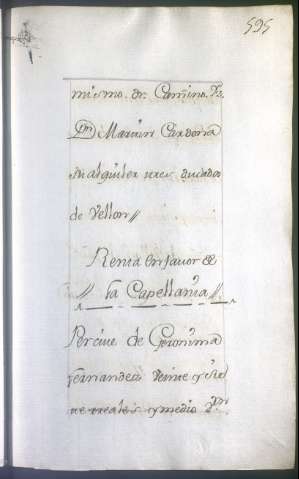 595
mismo dr. Camino. Ys.
Dn Martin Cardona
su alquiler tres ducados
de vellon//
Renta en favor de
// la Capellania //
Percive de Geronima
Fernandez Veinte y sie
te reales y medio Vn